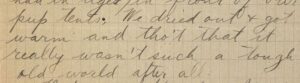 pup tents. We dried out & got
warm and tho't that it
really wasn't such a tough
old world after all.